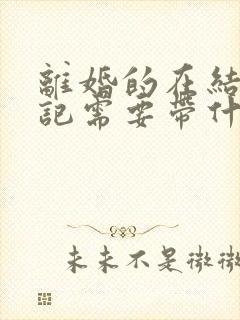 離婚的在結
記需要帶什
未来不是微微